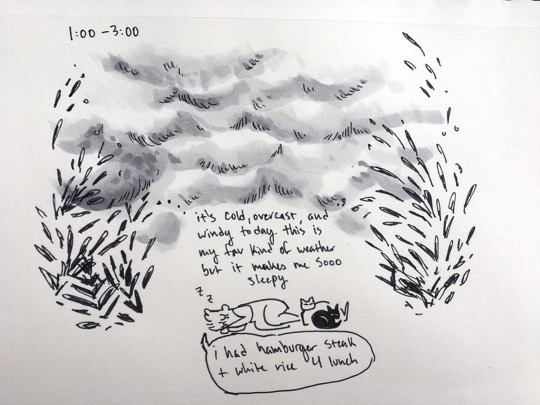 1:00 - 3:00
it's cold, overcast, and
windy today. this is
my fav kind of weather
but it makes me sooo
sleepy
z
z
i had hamburger steak
+ white rice 4 lunch